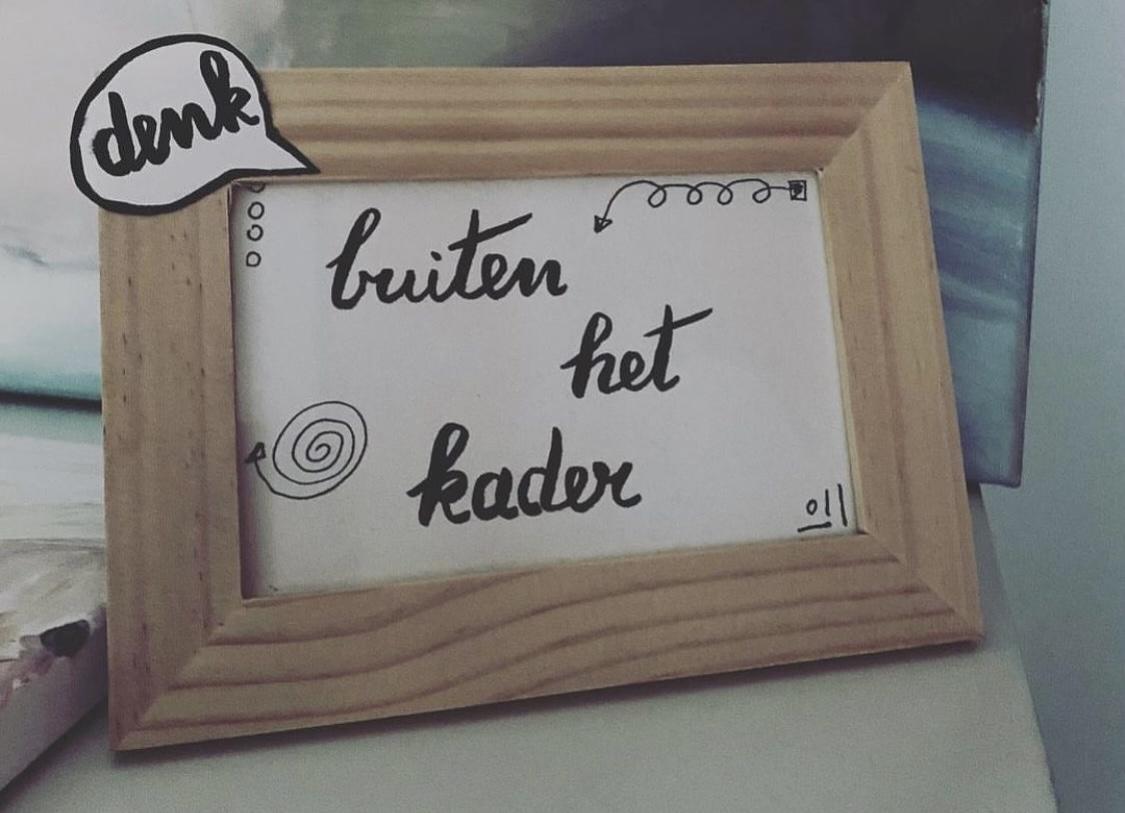 denk
buiten
het
kader